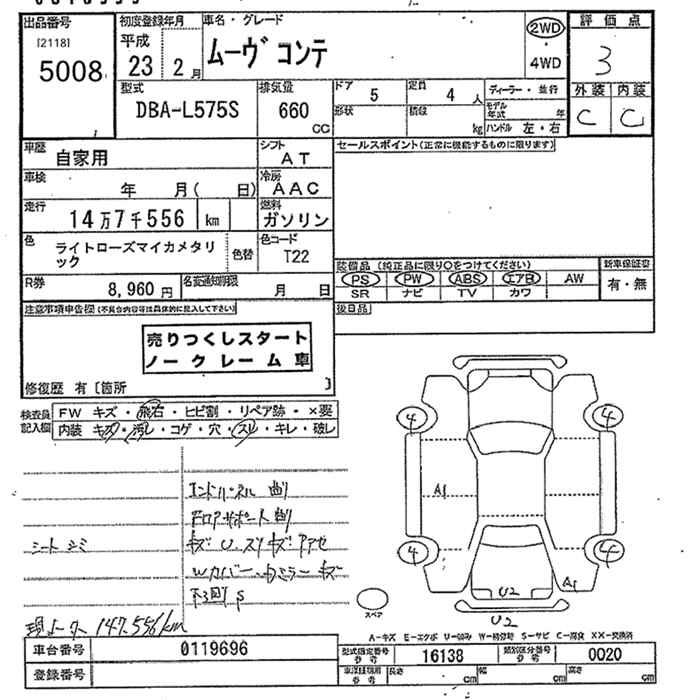 出品番号
[2118]
5008
初度登録年月
平成
23 2月
車名・グレード
ムーヴ コンテ
2WD
・
4WD
評価点
3
外装 内装
C C
型式
DBA-L575S
排気量
660
CC
ドア 5
定員 4 人
形状
積載
kg
ディーラー・並行
モデル年式 年
ハンドル 左・右
車歴
自家用
シフト
AT
車検
年 月( 日)
冷房
AAC
走行
14万7千556 km
燃料
ガソリン
色
ライトローズマイカメタリック
色替
色コード
T22
R券
8,960円
名変通知期限
月 日
セールスポイント(正常に機能するものに限ります)
装備品 (純正品に限り○をつけてください)
PS PW ABS エアB AW
SR ナビ TV カワ
新車保証書
有・無
後日品
注意事項申告欄(不具合内容等は具体的に記入して下さい)
売りつくしスタート
ノークレーム車
修復歴 有〔箇所 〕
検査員記入欄
FW キズ・飛石・ヒビ割・リペア跡・×要
内装 キズ・汚レ・コゲ・穴・スレ・キレ・破レ
エンドパネル 曲り
曲り
シートシミ
キズ U
Wカバー
キズ
S
現メーター 147.556km
4
4
A1
4
4
U2
A1
U2
スペア
A-キズ E-エクボ U-凹み W-補修跡 S-サビ C-腐食 XX-交換済
車台番号
0119696
登録番号
型式指定番号
16138
類別区分番号
0020
長さ cm
幅 cm
高さ cm